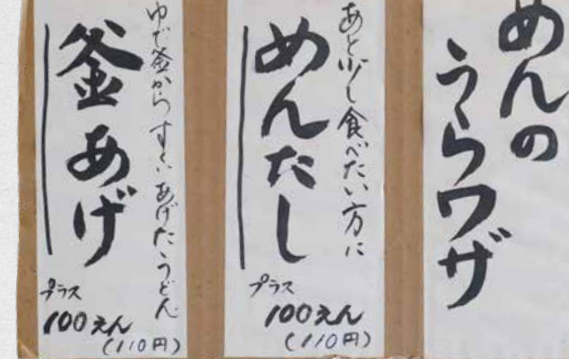 めんの
うらワザ
あと少し食べたい方に
めんたし
プラス
100えん
(110円)
ゆで釜からすくいあげたうどん
釜あげ
プラス
100えん
(110円)